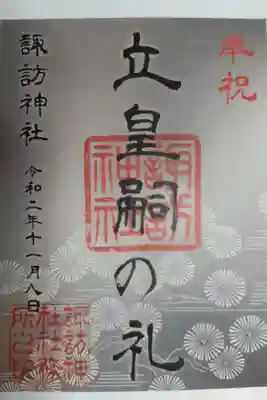 奉祝
立皇嗣の礼
諏訪神社
令和二年十一月八日
諏訪神社